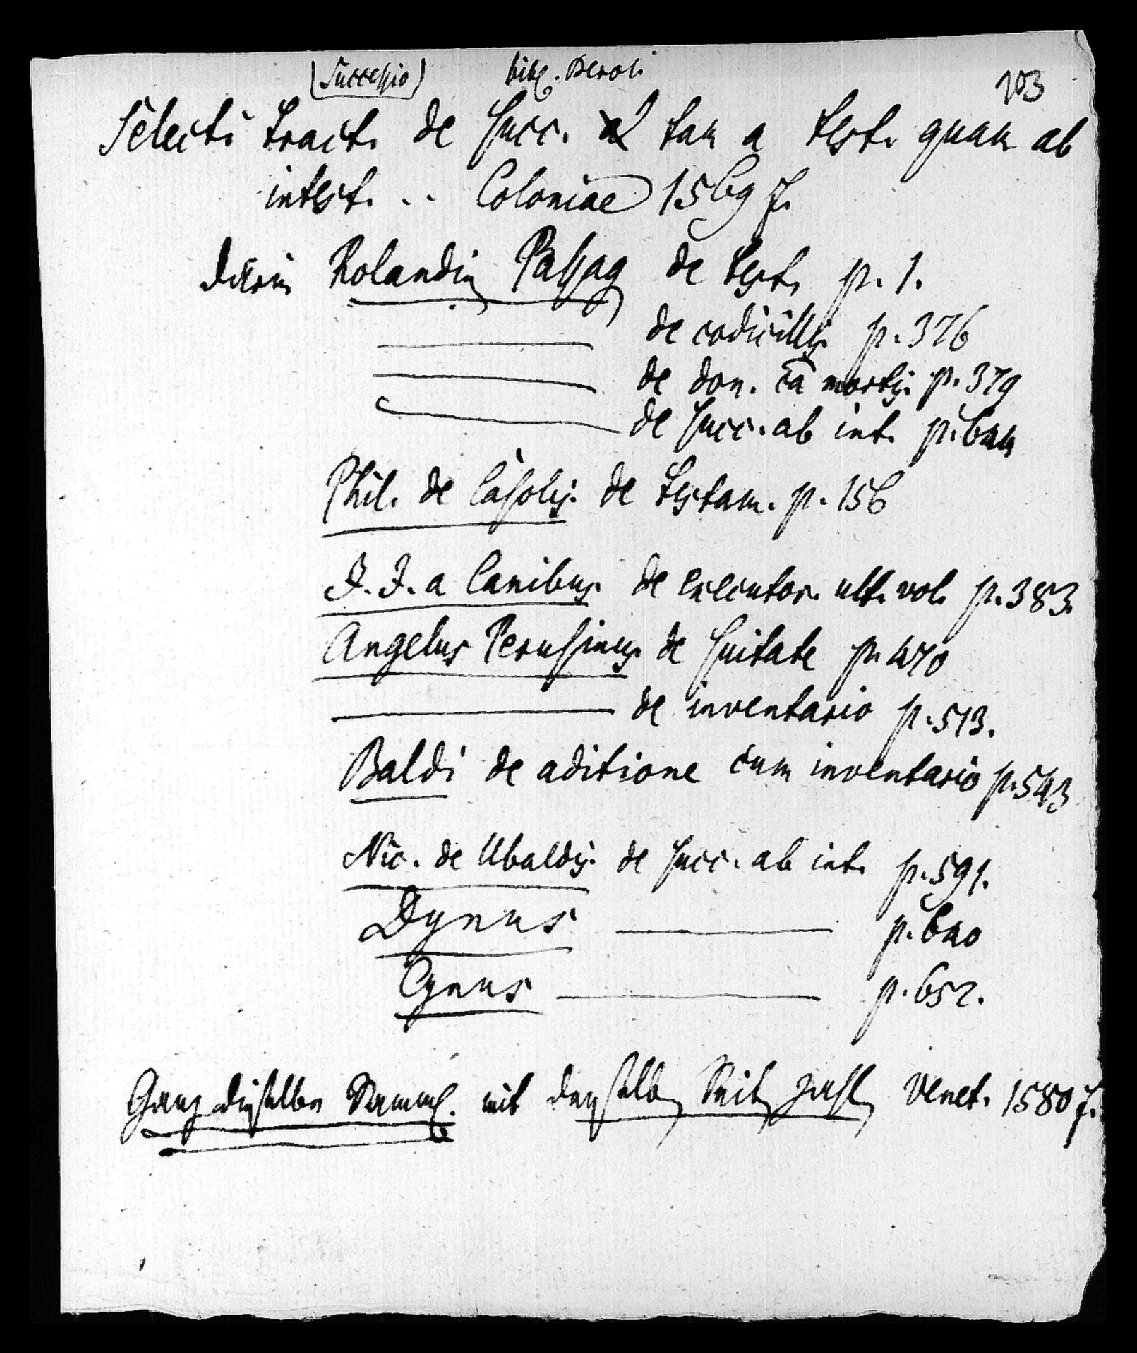 (Successio) bibl. Berol. 203
Selecti tract. de succ. tam a test. quam ab
intest. .. Coloniae 1569 f.
darin Rolandin Passag de test. p. 1.
de codicillis p. 376
de don. ca mortis p. 379
de succ. ab int. p. 644
Phil. de Casolis de testam. p. 156
J. J. a Canibus de executor. ult. vol. p. 383.
Angelus Perusinus de suitate p. 470
de inventario p. 513.
Baldi de aditione cum inventario p. 543
Nic. de Ubaldis de succ. ab int. p. 591.
Dynus p. 640
Cynus p. 652.
Ganz dieselbe Samml. mit denselben Seitzahlen Venet. 1580 f.